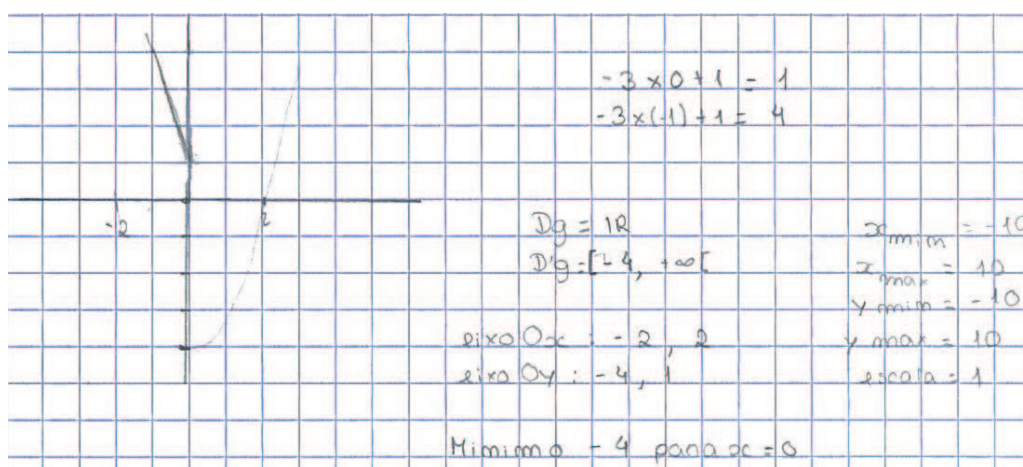 -3×0+1 = 1
-3×(-1)+1 = 4
-2
2
Dg = IR
D'g = [-4, +∞[
eixo Ox : -2, 2
eixo Oy : -4, 1
Minimo -4 para x = 0
x min = -10
x max = 10
y min = -10
y max = 10
escala = 1